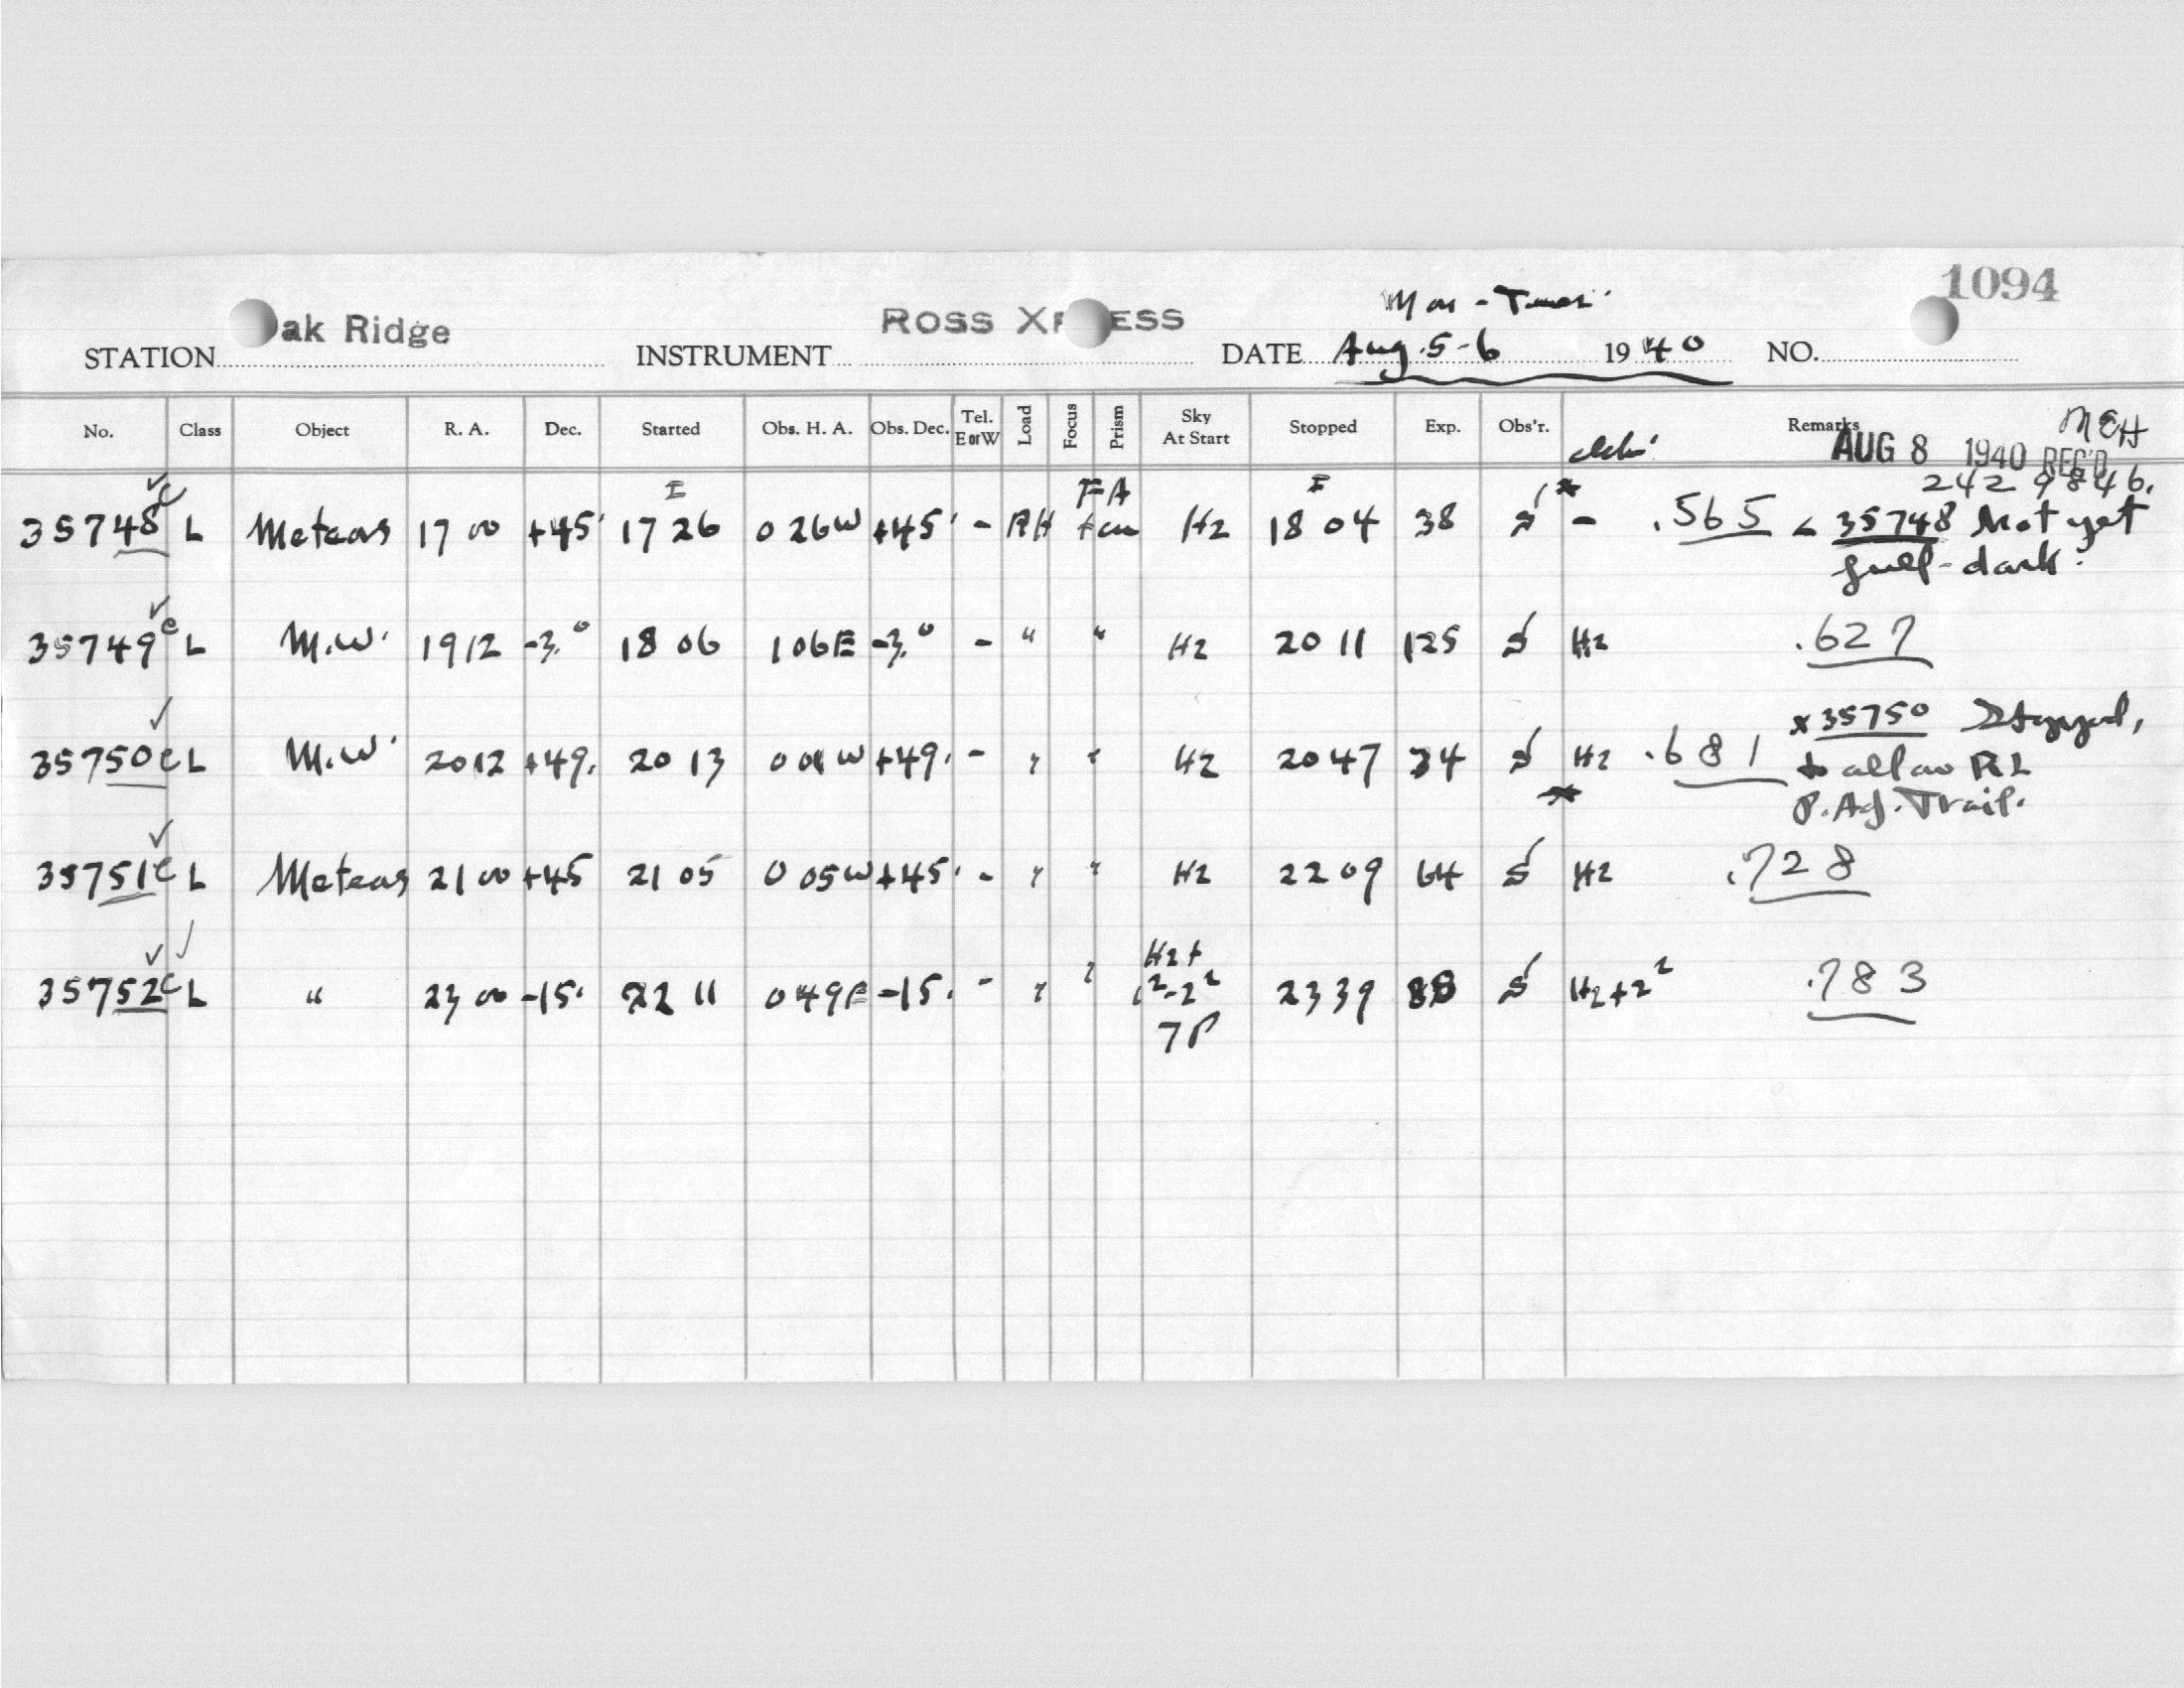 1094
Mon - Tues.
STATION Oak Ridge INSTRUMENT ROSS XPRESS DATE Aug. 5-6 1940 NO.
No. Class Object R. A. Dec. Started Obs. H. A. Obs. Dec. Tel. E or W Load Focus Prism Sky At Start Stopped Exp. Obs'r. Remarks
MEH
AUG 8 1940 REC'D
242 9846.
35748 L Meteors 17 00 +45 17 26 0 26W +45 - RH FA Hz 18 04 38 S - .565 35748 Not yet
full-dark.
35749 L M.W. 19 12 -3° 18 06 1 06E -3° - " " Hz 20 11 125 S Hz .627
35750 L M.W. 20 12 +49. 20 13 0 01W +49. - " " Hz 20 47 34 S Hz .681 x 35750 Stopped,
to allow RL
P. Adj. Trail.
35751 L Meteors 21 00 +45 21 05 0 05W +45 - " " Hz 22 09 64 S Hz .728
35752 L " 23 00 -15. 22 11 0 49E -15. - " " Hz + 1²-2² 7P 23 39 88 S Hz+2² .783